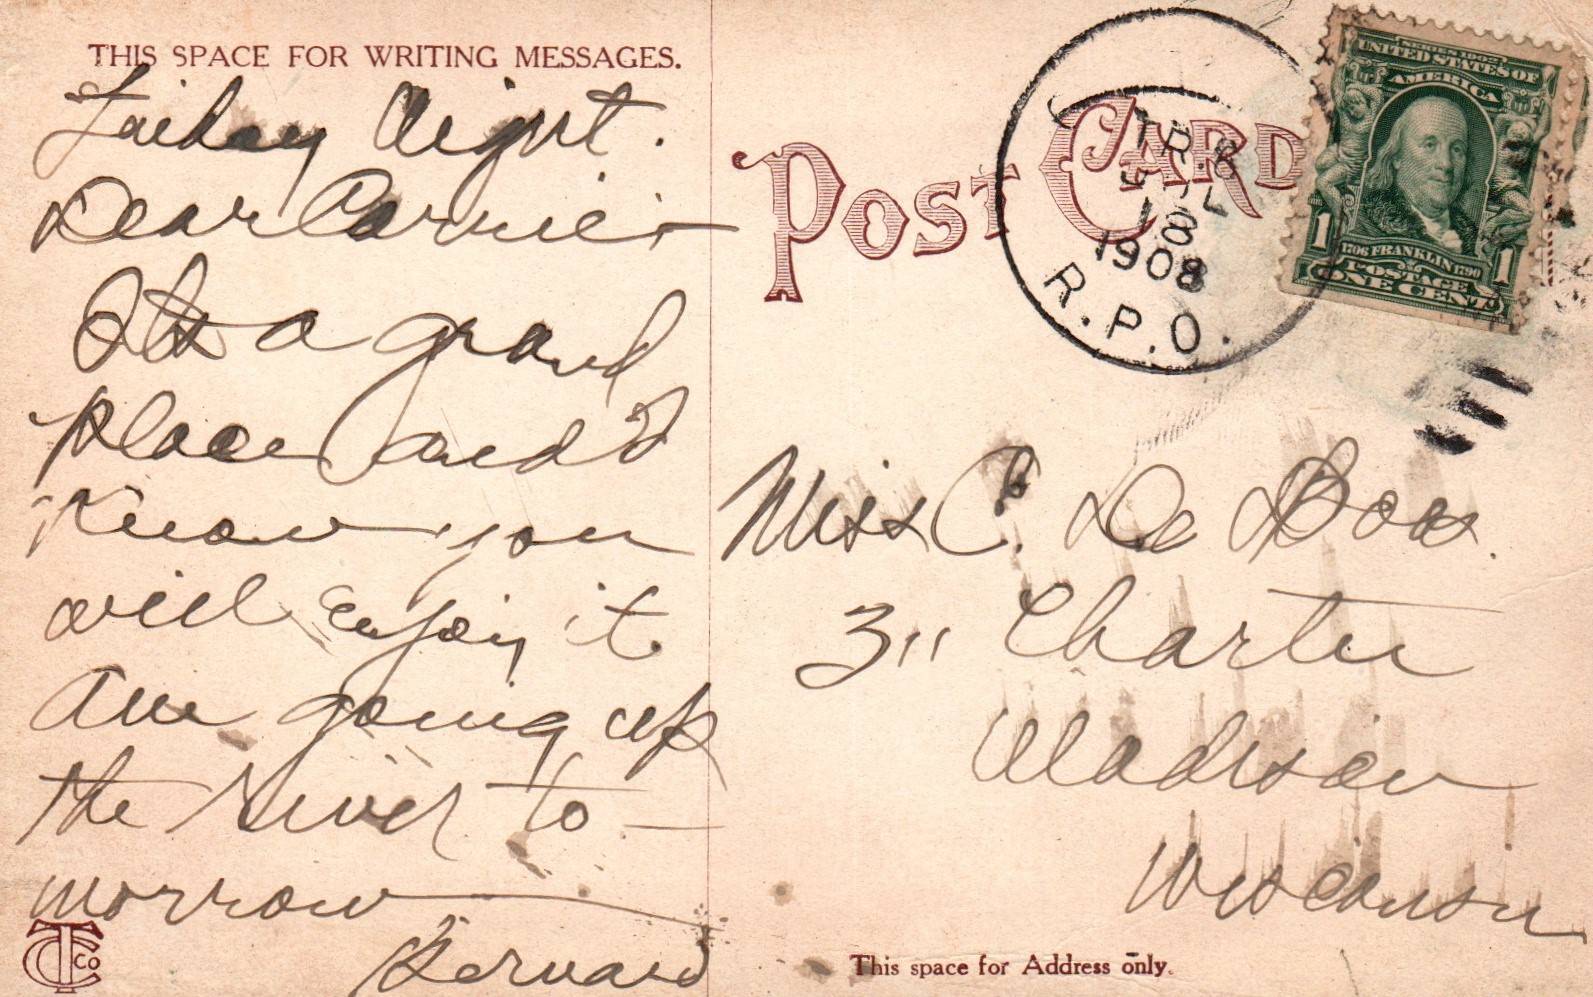 THIS SPACE FOR WRITING MESSAGES.
Friday Night.
Dear Carrie:-
Its a grand
place and I
know you
will enjoy it
Am going up
the river to-
morrow
Bernard
TC Co
POST CARD
TR. 8
JUL
18
1908
R.P.O.
SERIES 1902
UNITED STATES OF
AMERICA
1706 FRANKLIN 1790
1 1
POSTAGE
ONE CENT
Miss C. De Bos.
311 Charter
Madison
Wisconsin
This space for Address only.